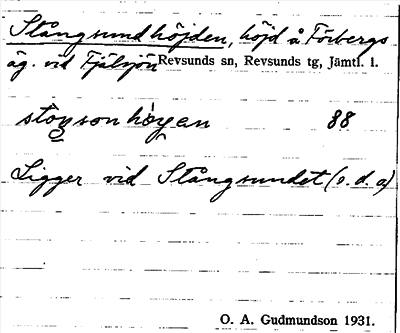 Stångsundhöjden, höjd å Förbergs
äg. vid Fjälsjön Revsunds sn, Revsunds tg, Jämtl. l.
stoŋson hòyan 88
Ligger vid Stångsundet (o. d. a)
O. A. Gudmundson 1931.